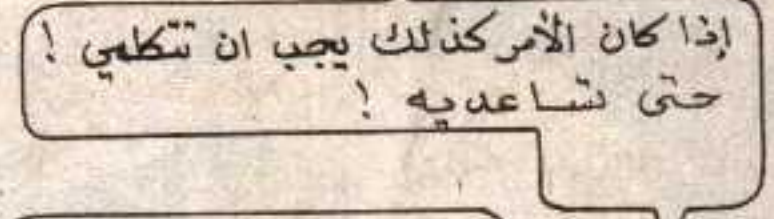 إذا كان الأمر كذلك يجب ان تتكلمي !
حتى تساعديه !